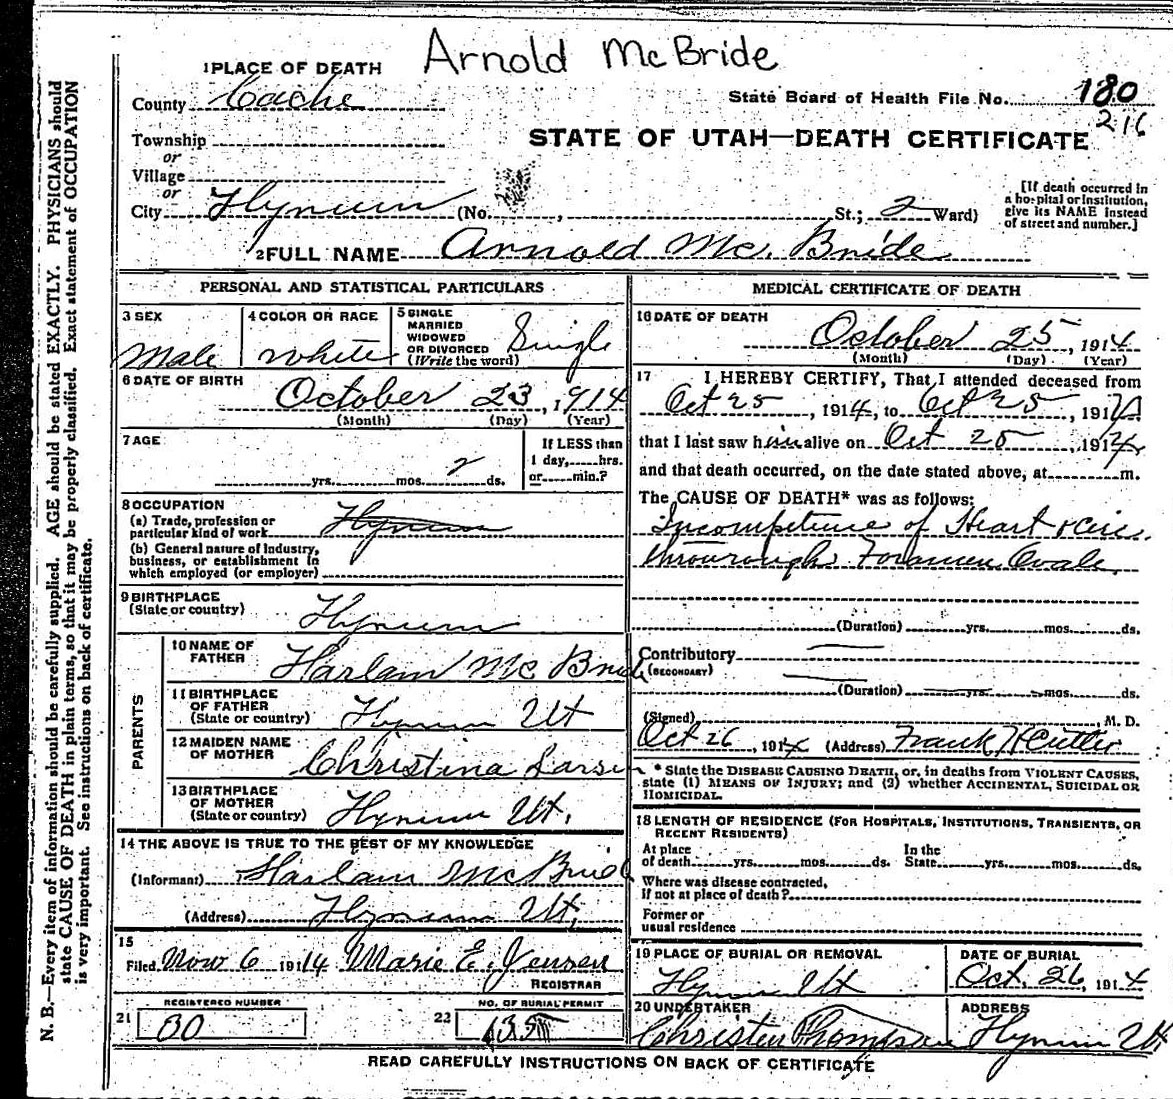 Arnold McBride
1 PLACE OF DEATH
County Cache
State Board of Health File No. 180
216
Township
or
STATE OF UTAH—DEATH CERTIFICATE
Village
or
City Hyrum (No. , St.; 2 Ward)
[If death occurred in
a hospital or institution,
give its NAME instead
of street and number.]
2 FULL NAME Arnold Mc. Bride
PERSONAL AND STATISTICAL PARTICULARS
3 SEX
Male
4 COLOR OR RACE
White
5 SINGLE
MARRIED
WIDOWED
OR DIVORCED
(Write the word)
Single
6 DATE OF BIRTH
October 23, 1914
(Month) (Day) (Year)
7 AGE
yrs. mos. 2 ds.
If LESS than
1 day, hrs.
or min.?
8 OCCUPATION
(a) Trade, profession or
particular kind of work Hyrum
(b) General nature of industry,
business, or establishment in
which employed (or employer)
9 BIRTHPLACE
(State or country) Hyrum
PARENTS
10 NAME OF
FATHER Harlam Mc Bride
11 BIRTHPLACE
OF FATHER
(State or country) Hyrum Ut
12 MAIDEN NAME
OF MOTHER Christina Larsen
13 BIRTHPLACE
OF MOTHER
(State or country) Hyrum Ut.
14 THE ABOVE IS TRUE TO THE BEST OF MY KNOWLEDGE
(Informant) Harlam McBride
(Address) Hyrum Ut.
15
Filed Nov 6 1914 Marie E. Jensen
REGISTRAR
REGISTERED NUMBER
21 80
NO. OF BURIAL PERMIT
22 135
MEDICAL CERTIFICATE OF DEATH
16 DATE OF DEATH
October 25, 1914
(Month) (Day) (Year)
17 I HEREBY CERTIFY, That I attended deceased from
Oct 25, 1914, to Oct 25, 1914
that I last saw him alive on Oct 25, 1914,
and that death occurred, on the date stated above, at m.
The CAUSE OF DEATH* was as follows:
Incompetence of Heart & Circ.
throurough Foramen Ovale
(Duration) yrs. mos. ds.
Contributory
(SECONDARY)
(Duration) yrs. mos. ds.
(Signed) , M. D.
Oct 26, 1914 (Address) Frank H Cutler
* State the DISEASE CAUSING DEATH, or, in deaths from VIOLENT CAUSES,
state (1) MEANS OF INJURY; and (2) whether ACCIDENTAL, SUICIDAL OR
HOMICIDAL.
18 LENGTH OF RESIDENCE (FOR HOSPITALS, INSTITUTIONS, TRANSIENTS, OR
RECENT RESIDENTS)
At place
of death yrs. mos. ds.
In the
State yrs. mos. ds.
Where was disease contracted,
if not at place of death?
Former or
usual residence
19 PLACE OF BURIAL OR REMOVAL
Hyrum Ut
DATE OF BURIAL
Oct. 26, 1914
20 UNDERTAKER
Christen Thompson
ADDRESS
Hyrum Ut
READ CAREFULLY INSTRUCTIONS ON BACK OF CERTIFICATE
N. B.—Every item of information should be carefully supplied. AGE should be stated EXACTLY. PHYSICIANS should
state CAUSE OF DEATH in plain terms, so that it may be properly classified. Exact statement of OCCUPATION
is very important. See instructions on back of certificate.